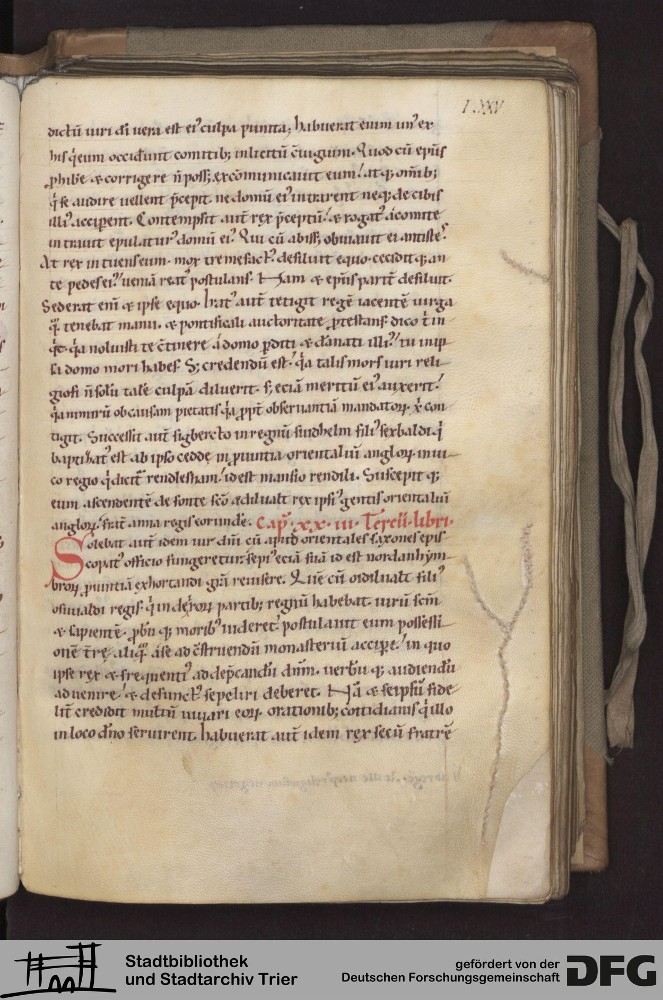 LXXV
dictū uiri dī uera est ei' culpa punita; habuerat enim un' ex
his q̇ eum occiderunt comitib; inlicitū c̄iugium. Quod cū ep̄us
ꝓhibe & corrigere n̄ poss; excōmunicauit eum! atq; om̄ib;
q̇ se audire uellent p̄cepit ne domū ei' intrarent neq; de cibis
illi' accip̄ent. Contempsit aut̄ rex p̄ceptū! & rogat' a comite
intrauit epulatur' domū ei'. Qui cū abiss; obuiauit ei antistes.
At rex intuens eum. mox tremefact' desiluit equo. cecidit q; an
te pedes ei'! ueniā reat' postulans. Nam & ep̄us parit̄ desiluit.
Sederat enī & ipse equo. Irat' aut̄ tetigit regē iacentē uirga
q̄ tenebat manu. & pontificali auctoritate ꝓtestans! dico t̄ in
q̇t. q̇a noluisti te c̄tinere a domo ꝑditi & dānati illi'! tu in ip
sa domo mori habes. S; credendū est! q̇a talis mors uiri reli
giosi n̄ solū talē culpā diluerit. s; eciā meritū ei' auxerit!
q̇a nimirū ob causam pietatis q̇a ꝓpt̄ obseruantiā mandatoꝝ x̄ con
tigit. Successit aut̄ sigbercto in regnū suidhelm fili' sexbaldi. q̇
baptizat' est ab ipso cedde in ꝓuintia orientaliū angloꝝ. in ui
co regio q̇ dicit̄ rendlesham! id est mansio rendili. Suscepit q;
eum ascendentē de fonte scō ediluald rex ipsi' gentis orientaliū
angloꝝ! frat̄ anna regis eorundē. Cap̄. xx. iii. Tercii. libri.
Solebat aut̄ idem uir dn̄i cū apud orientales saxones epis
scopat' officio fungeretur! sepi' eciā suā id est nordanhym
broꝝ ꝓuintiā exhortandi gr̄a reuisere. Quē cū oidiluald fili'
osuualdi regis. q̇ in deroꝝ partib; regnū habebat. uirū sc̄m
& sapientē. ꝓbū q; morib' uideret! postulauit eum possessi
onē t̄rę aliq̄ a se ad c̄struendū monasteriū accipe! in quo
ipse rex & frequenti' ad dep̄candū dn̄m. uerbū q; audiendū
aduenire! & defunct' sepeliri deberet. Nā & seipsū fide
lit̄ credidit multū iuuari eoꝝ orationib; cottidianis q̇ illo
in loco dn̄o seruirent. habuerat aut̄ idem rex secū fratrē
Stadtbibliothek
und Stadtarchiv Trier
gefördert von der
Deutschen Forschungsgemeinschaft
DFG